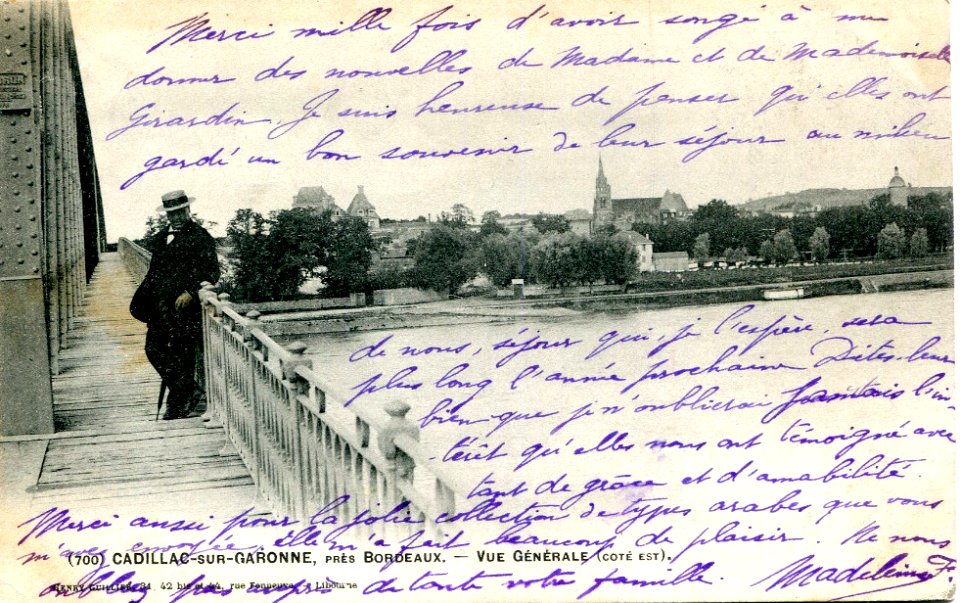 Merci mille fois d'avoir songé à me
donner des nouvelles de Madame et de Mademoiselle
Girardin. Je suis heureuse de penser qu'elles ont
gardé un bon souvenir de leur séjour au milieu
de nous, séjour qui, je l'espère, sera
plus long l'année prochaine. Dites-leur
bien que je n'oublierai jamais l'in-
térêt qu'elles nous ont témoigné avec
tant de grâce et d'amabilité.
Merci aussi pour la jolie collection de types arabes que vous
m'avez envoyée, elle m'a fait beaucoup de plaisir. Ne nous
(700) CADILLAC-SUR-GARONNE, PRÈS BORDEAUX. — VUE GÉNÉRALE (COTÉ EST).
oubliez pas auprès de toute votre famille. Madeleine F.
HENRY GUILLIER 42 bis et 44, rue Fonneuve, Libourne